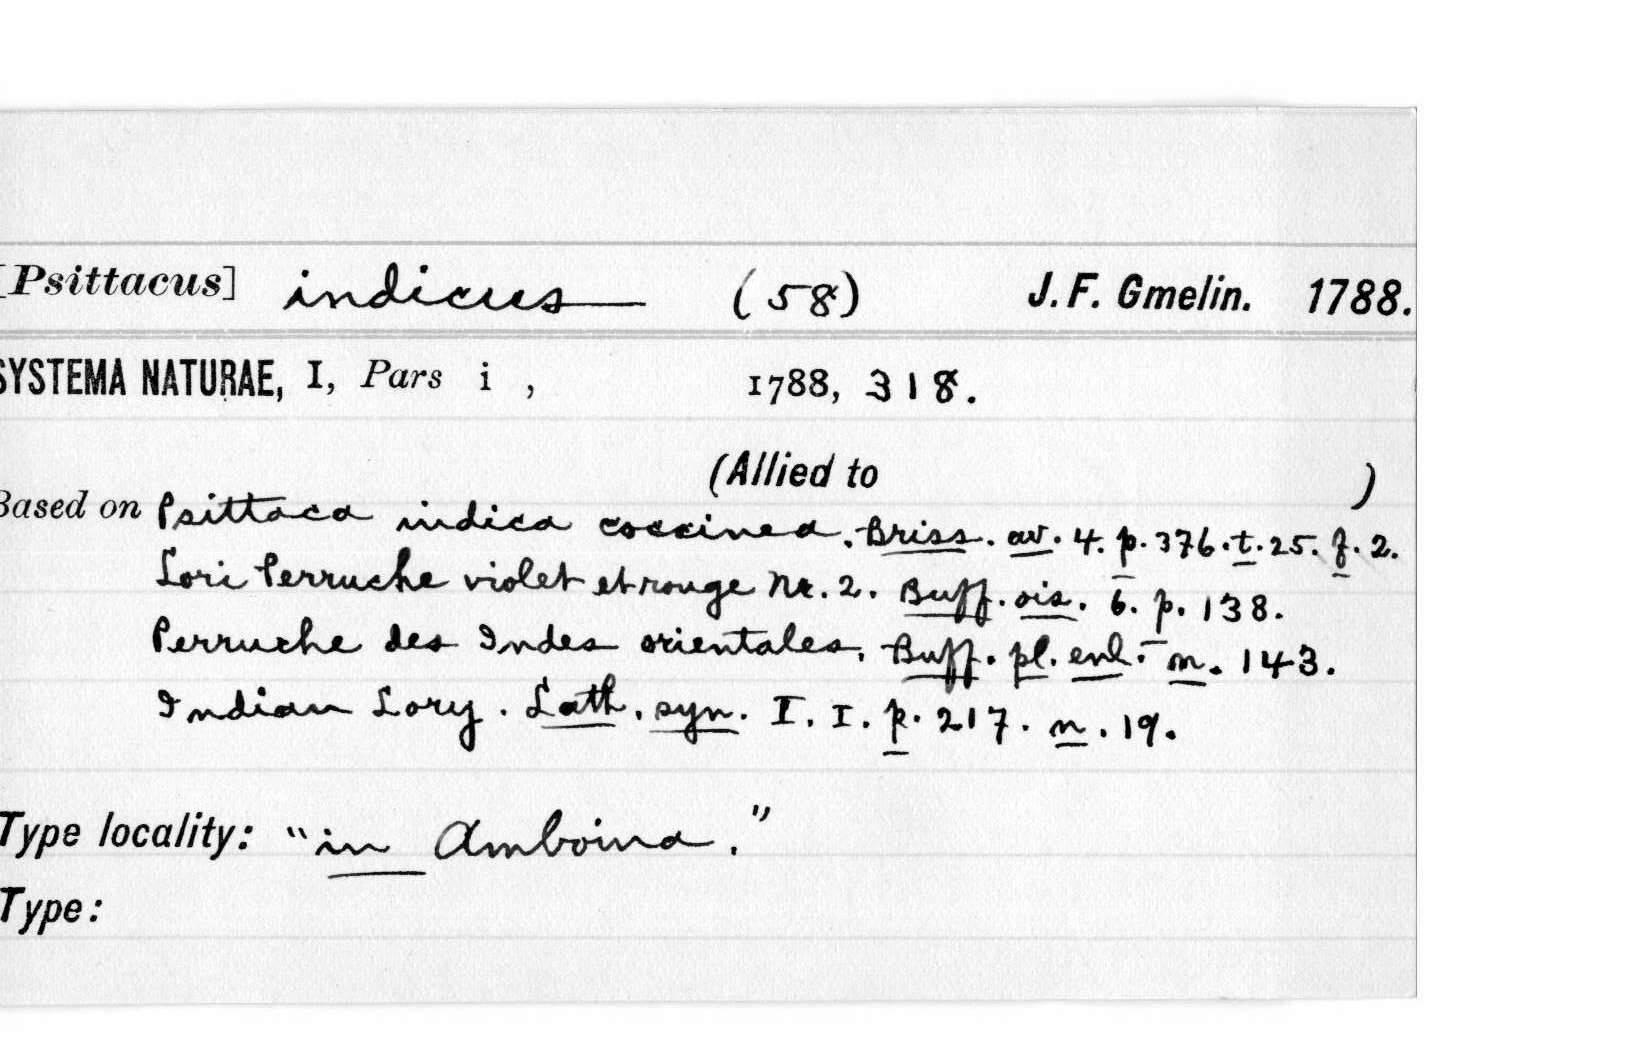 [Psittacus] indicus (58) J. F. Gmelin. 1788.
SYSTEMA NATURAE, I, Pars i , 1788, 318.
(Allied to )
Based on Psittaca indica coccinea. Briss. av. 4. p. 376. t. 25. f. 2.
Lori Perruche violet et rouge Nr. 2. Buff. ois. 6. p. 138.
Perruche des Indes orientales. Buff. pl. enl. n. 143.
Indian Lory. Lath. syn. I. I. p. 217. n. 19.
Type locality: "in Amboina."
Type: